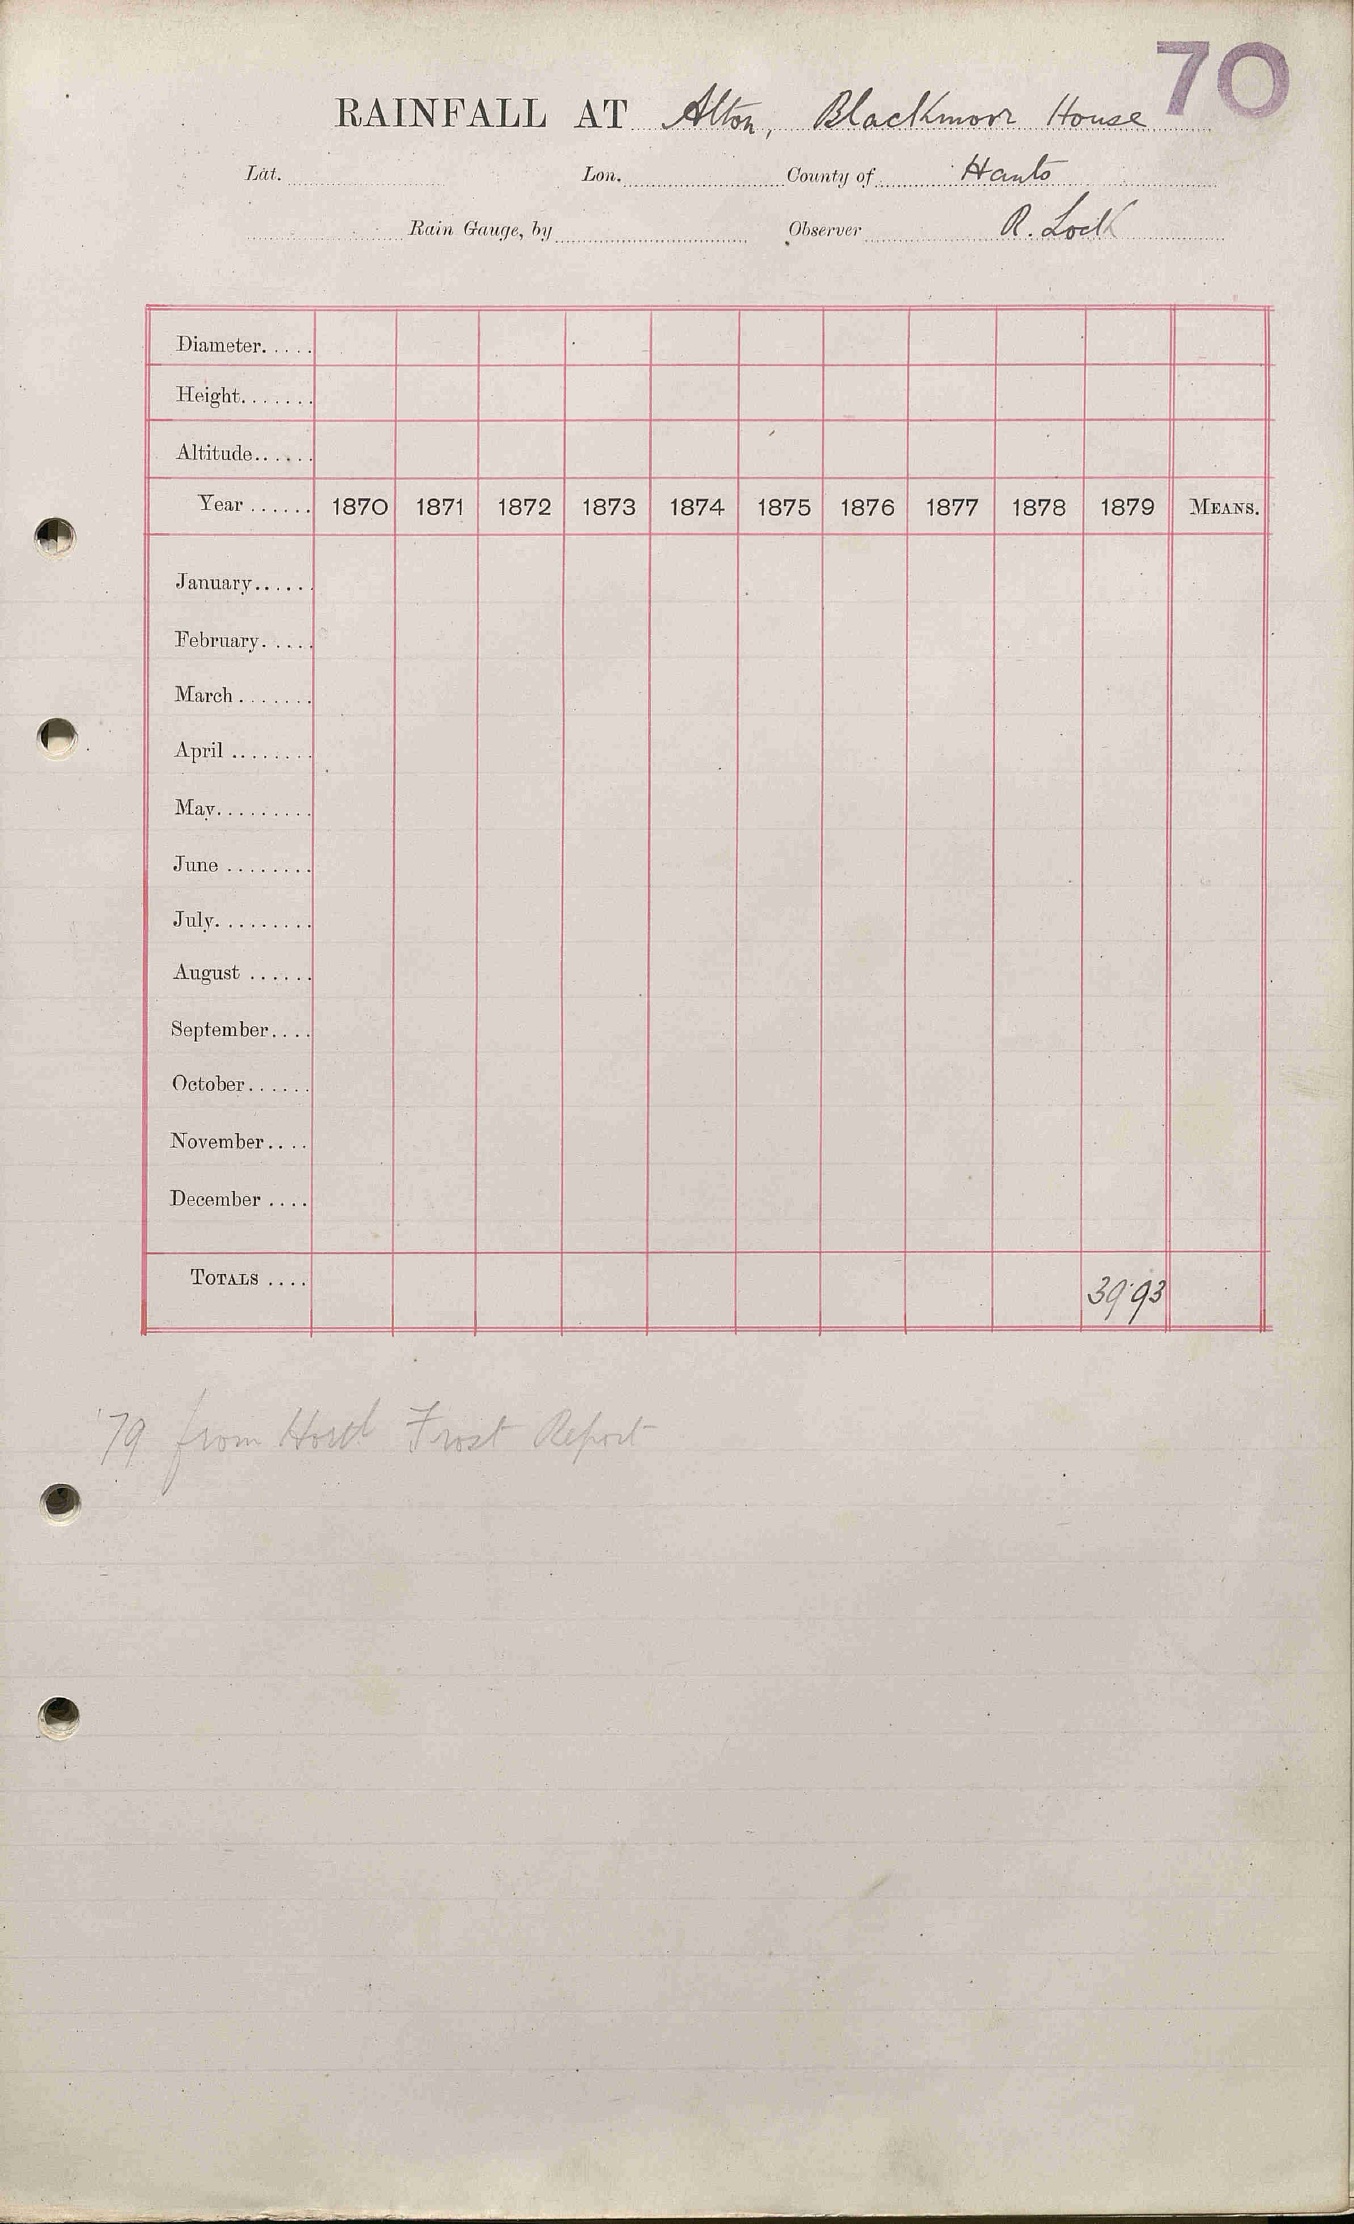 70
RAINFALL AT Alton, Blackmoor House
Lat. Lon. County of Hants
Rain Gauge, by Observer R. Lock
Diameter.....
Height.......
Altitude......
Year ...... 1870 1871 1872 1873 1874 1875 1876 1877 1878 1879 MEANS.
January......
February.....
March .......
April ........
May.........
June ........
July.........
August ......
September....
October......
November....
December ....
TOTALS .... 39.93
'79 from Hortl Frost Report